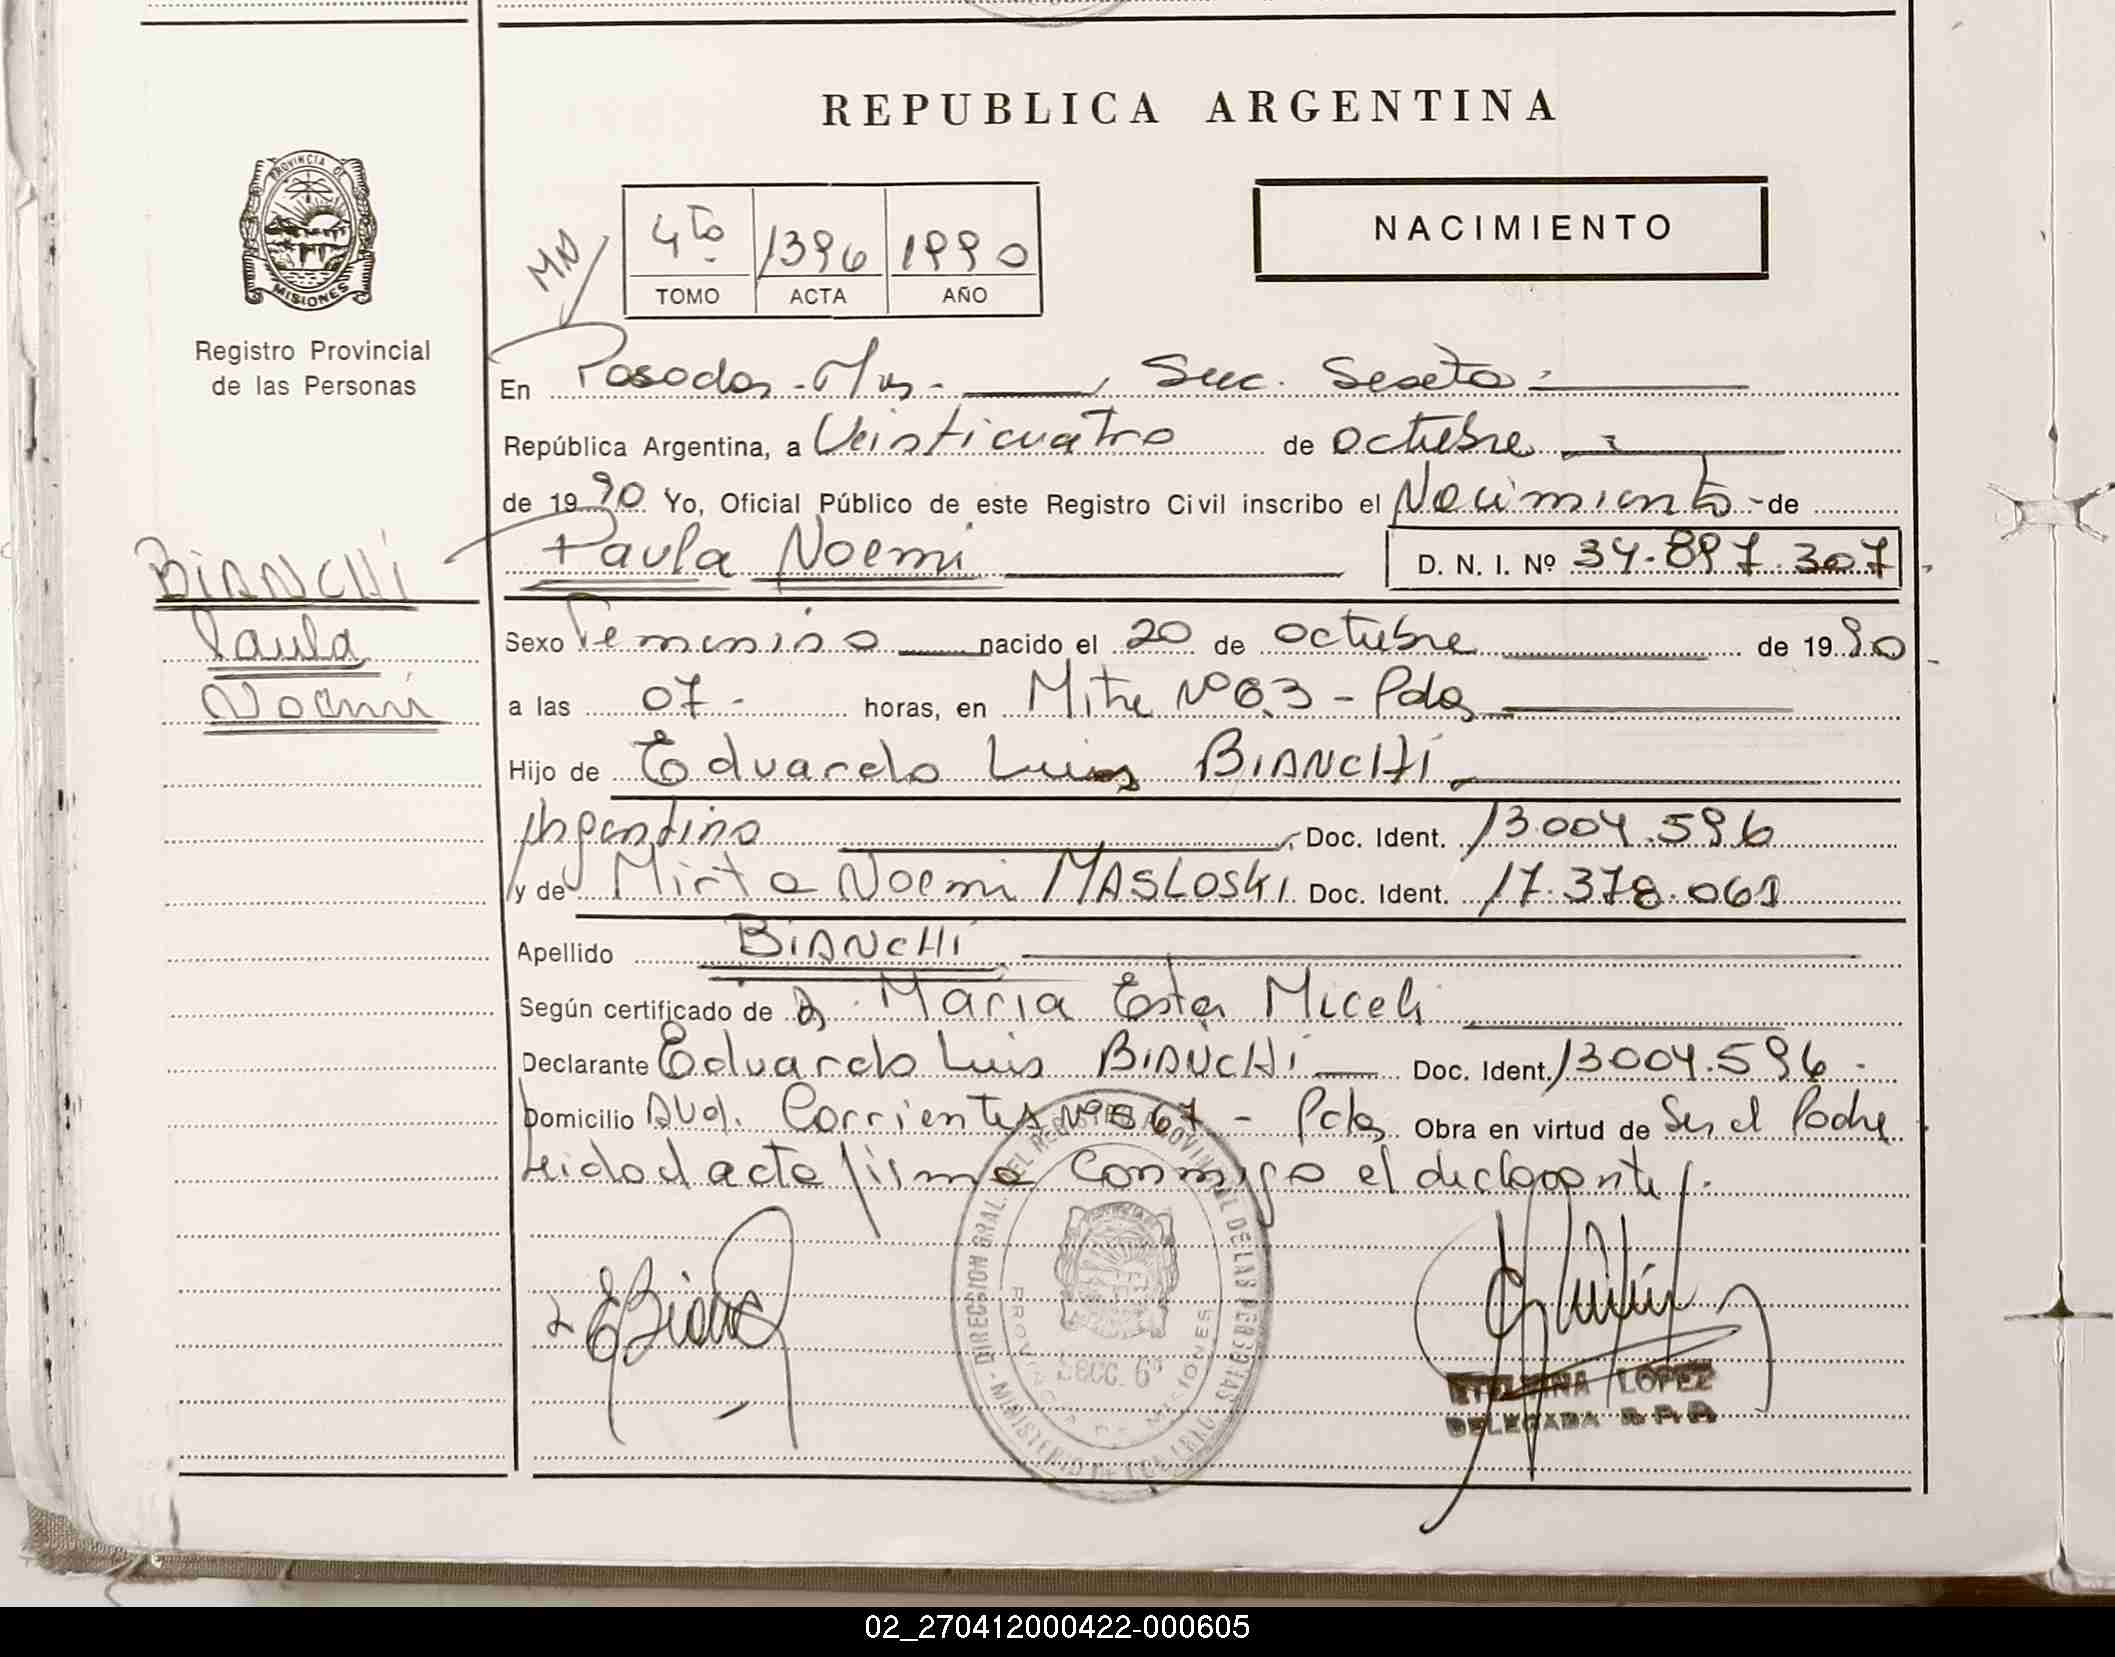 REPUBLICA ARGENTINA
PROVINCIA DE
MISIONES
Registro Provincial
de las Personas
NACIMIENTO
4to 1396 1990
TOMO ACTA AÑO
En Posadas - Mns - , Secc. Sexta -
República Argentina, a Veinticuatro de octubre
de 1990 Yo, Oficial Público de este Registro Civil inscribo el Nacimiento - de
BIANCHI
Paula
Noemi
Paula Noemi D. N. I. Nº 34.897.307
Sexo Femenino nacido el 20 de octubre de 1990
a las 07 - horas, en Mitre Nº 63 - Pdas
Hijo de Eduardo Luis BIANCHI
Argentino Doc. Ident. 13.004.596
y de Mirta Noemi MASLOSKI Doc. Ident. 17.378.061
Apellido BIANCHI
Según certificado de María Ester Miceli
Declarante Eduardo Luis BIANCHI Doc. Ident. 13.004.596 -
Domicilio Avda. Corrientes Nº 567 - Pdas Obra en virtud de Ser el Padre
Leida el acta firma conmigo el declarante
DIRECCION GRAL. DEL REGISTRO PROVINCIAL DE LAS PERSONAS
PROVINCIA DE MISIONES
SECC. 6ª
LOPEZ
DELEGADA R.P.P.
02_270412000422-000605